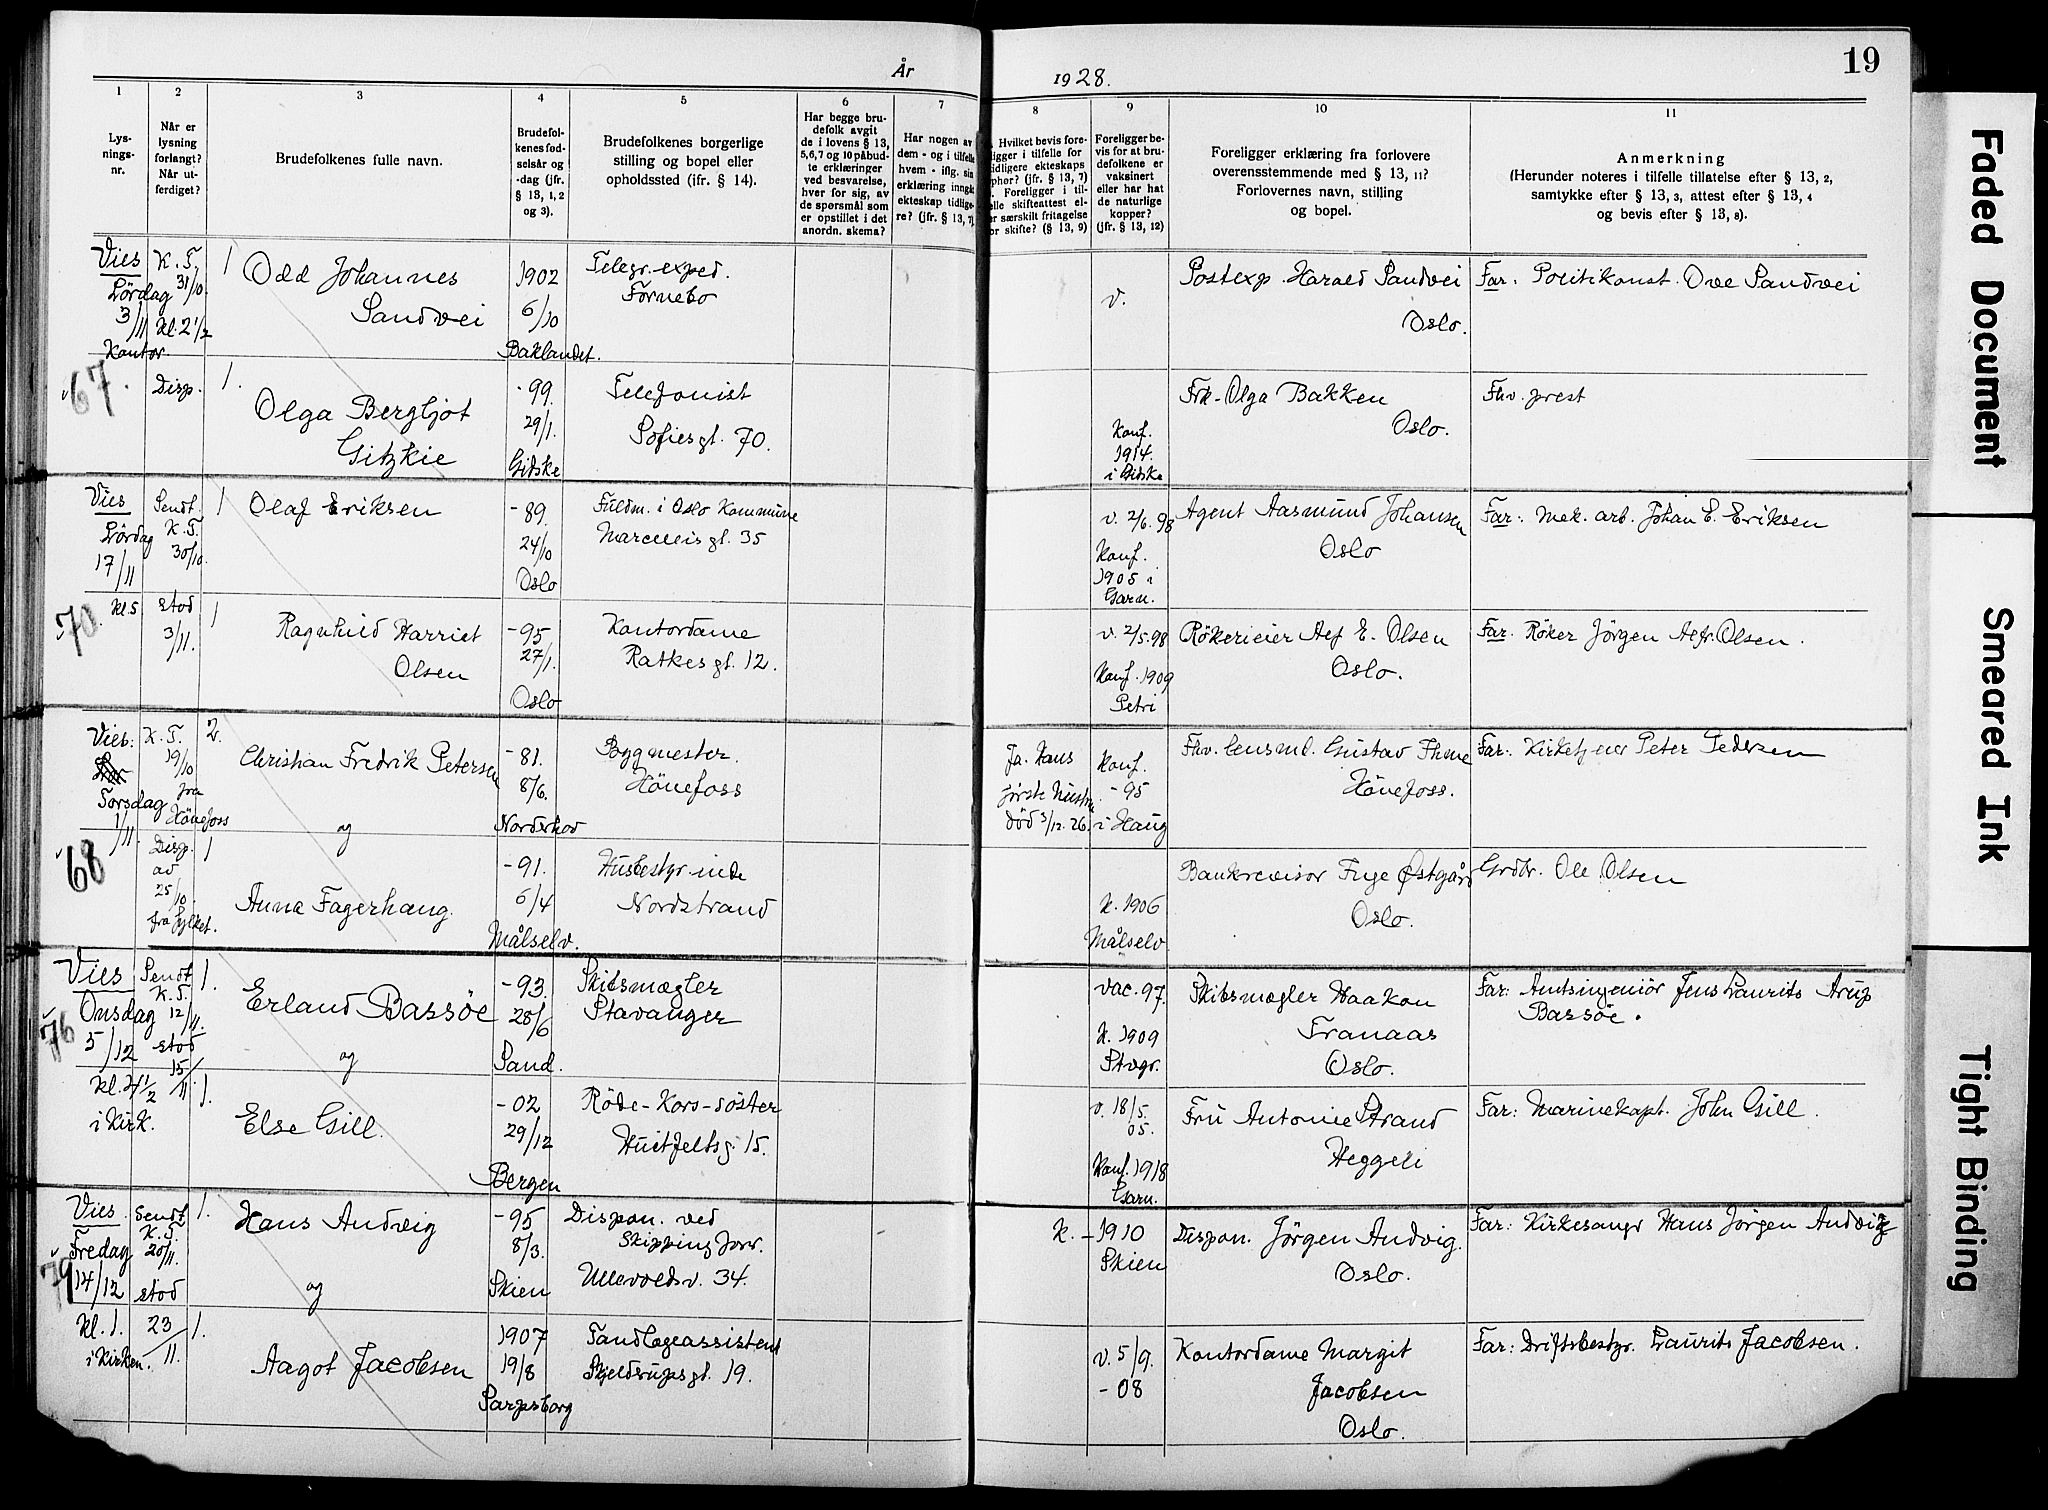 År 1928.
19
1
2
3
4
5
6
7
8
9
10
11
Lys-
nings-
nr.
Når er
lysning
forlangt?
Når ut-
ferdiget?
Brudefolkenes fulle navn.
Brudefol-
kenes fød-
selsår og
-dag (jfr.
§ 13, 1, 2
og 3).
Brudefolkenes borgerlige
stilling og bopel eller
opholdssted (ifr. § 14).
Har begge bru-
defolk avgit
de i lovens § 13,
5,6,7 og 10 påbud-
te erklæringer
ved besvarelse,
hver for sig, av
de spørsmål som
er opstillet i det
anordn. skema?
Har nogen av
dem - og i tilfelle
hvem - iflg. sin
erklæring inngk
ekteskap tidlige-
re? (jfr. § 13, 7)
Hvilket bevis fore-
ligger i tilfelle for
tidligere ekteskaps
ophør? (jfr. § 13, 7)
Foreligger i til-
felle skifteattest el-
er særskilt fritagelse
or skifte? (§ 13, 9)
Foreligger be-
vis for at bru-
defolkene er
vaksinert
eller har hat
de naturlige
kopper?
(jfr. § 13, 12)
Foreligger erklæring fra forlovere
overensstemmende med § 13, 11?
Forlovernes navn, stilling
og bopel.
Anmerkning
(Herunder noteres i tilfelle tillatelse efter § 13, 2,
samtykke efter § 13, 3, attest efter § 13, 4
og bevis efter § 13, 8).
Vies
Lördag
3/11
Kontor.
67.
K. T.
31/10.
Kl. 2 1/2
1
Odd Johannes
Sandvei
1902
6/10
Baklandet.
Telegr. exped.
Fornebo
v.
Postexp. Harald Sandvei
Oslo.
Far: Politikonst. Ove Sandvei
Disp.
1.
Olga Bergljot
Gitzkie
- 99.
29/1.
Gidske
Telefonist
Sofiesgt. 70.
Konf.
1914.
i Gidske
Frk. Olga Bakken
Oslo.
Fhv. prest
Vies
Lördag
17/11
kl. 5
70.
Sendt.
K. T.
30/10.
1
Olaf Eriksen
- 89.
24/10
Oslo
Fuldm. i Oslo Kommune
Marcelis gt. 35
v. 2/6. 98
Konf.
1905 i
Garn.
Agent Aasmund Johansen
Oslo
Far: Mek. arb. Johan E. Eriksen
stod
3/11.
1
Ragnhild Harriet
Olsen
- 95
27/1.
Oslo
Kontordame
Ratkes gt. 12.
v. 2/5. 98
Konf. 1909
Petri
Rökerieier Alf E. Olsen
Oslo.
Far. Röker Jörgen Alfr. Olsen.
Vies:
Torsdag
1/11.
68
K. T.
19/10
fra
Hönefoss
2.
Christian Fredrik Petersen
og
- 81.
8/6.
Norderhov
Byggmester.
Hönefoss
Ja. Hans
förste hustru
död 3/12. 26.
Konf.
- 95
i Haug
Fhv. lensm. Gustav Thme
Hönefoss.
Far: Kirketjener Peter Pedersen
Disp.
av
25/10.
fra fylket.
1
Anna Fagerhaug.
- 91.
6/4
Målselv.
Husbestyrinde
Nordstrand
K. 1906
Målselv
Bankrevisor Inge Østgård
Oslo.
Grdbr. Ole Olsen
Vies
Onsdag
5/12
kl. 4 1/2
i Kirk.
76
Sendt
K. T.
12/11.
stod
15/11.
1.
Erland Bassöe
og
- 93.
28/6
Sand.
Skibsmægler
Stavanger
vac. 97.
K. 1909
Stvgr.
Skibsmægler Haakon
Franaas
Oslo.
Far: Amtsingeniör Jens Laurits Arup
Bassöe.
1.
Else Gill.
- 02
29/12
Bergen
Röde-Kors-söster
Huitfeltsg. 15.
v. 18/5.
05.
Konf. 1918
Garn.
Fru Antonie Strand
Heggeli
Far: Marinekapt. John Gill.
Vies.
Fredag
14/12
kl. 1.
i Kirken.
79
Sendt
K. T.
20/11.
stod
23/11.
1.
Hans Andvig
og
- 95
8/3.
Skien
Dispon. ved
Skipping forr.
Ullevoldsv. 34.
K. - 1910
Skien
Dispon. Jörgen Andvig.
Oslo.
Far: Kirkesangr Hans Jörgen Andvig
1.
Aagot Jacobsen
1907
19/8
Sarpsborg
Tandlægeassistent
Skjeldrups gt. 19.
v. 5/9.
- 08
Kontordame Margit
Jacobsen
Oslo.
Far: Driftsbestyr. Laurits Jacobsen.
Faded Document
Smeared Ink
Tight Binding